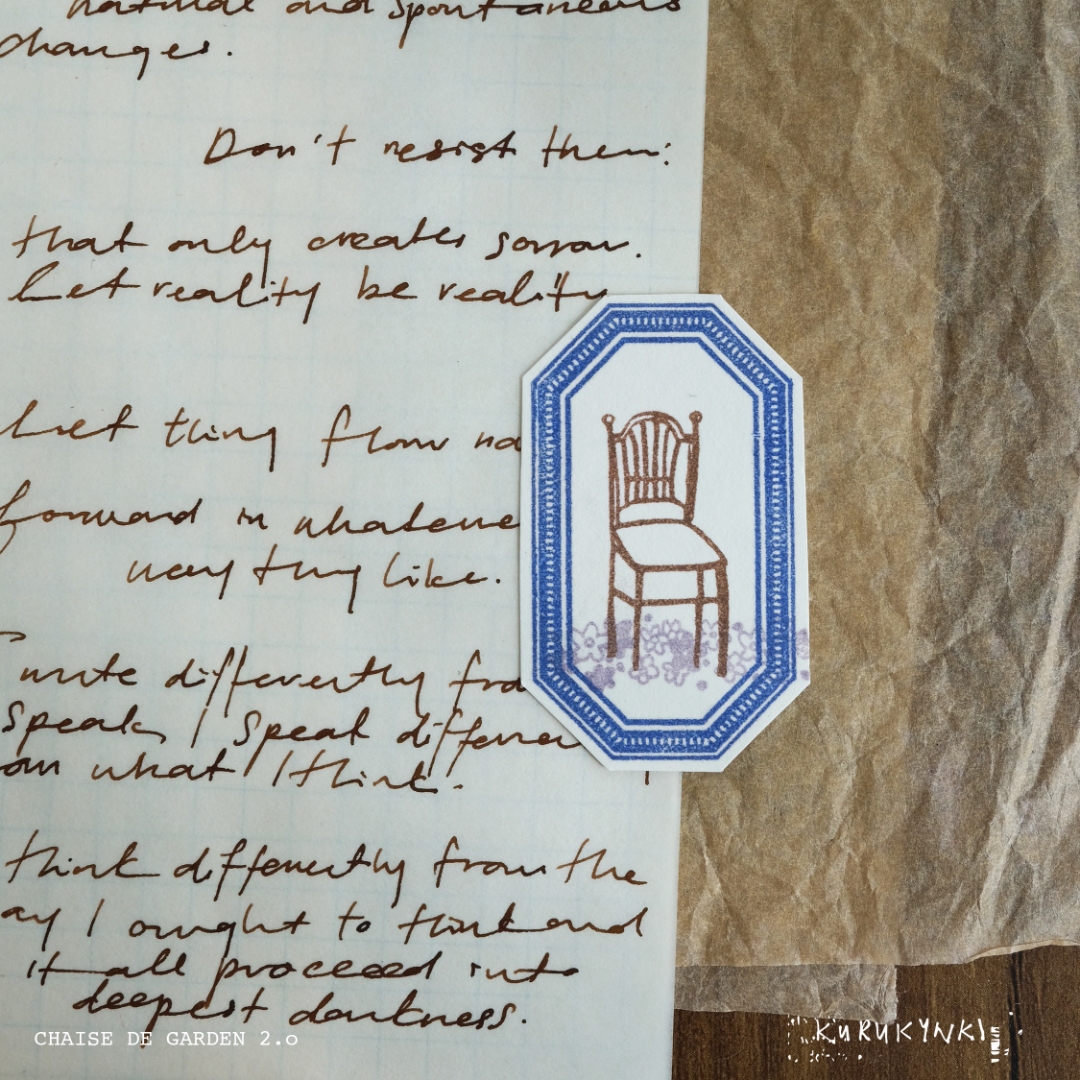 natural and spontaneous
changes.
Don't resist them:
that only creates sorrow.
Let reality be reality
Let thing flow na
forward in whateve
way they like.
write differently fro
speak, I speak differen
what I think.
think differently from the
ay I ought to think and
it all proceed into
deepest darkness.
CHAISE DE GARDEN 2.0
KURUKYNKI